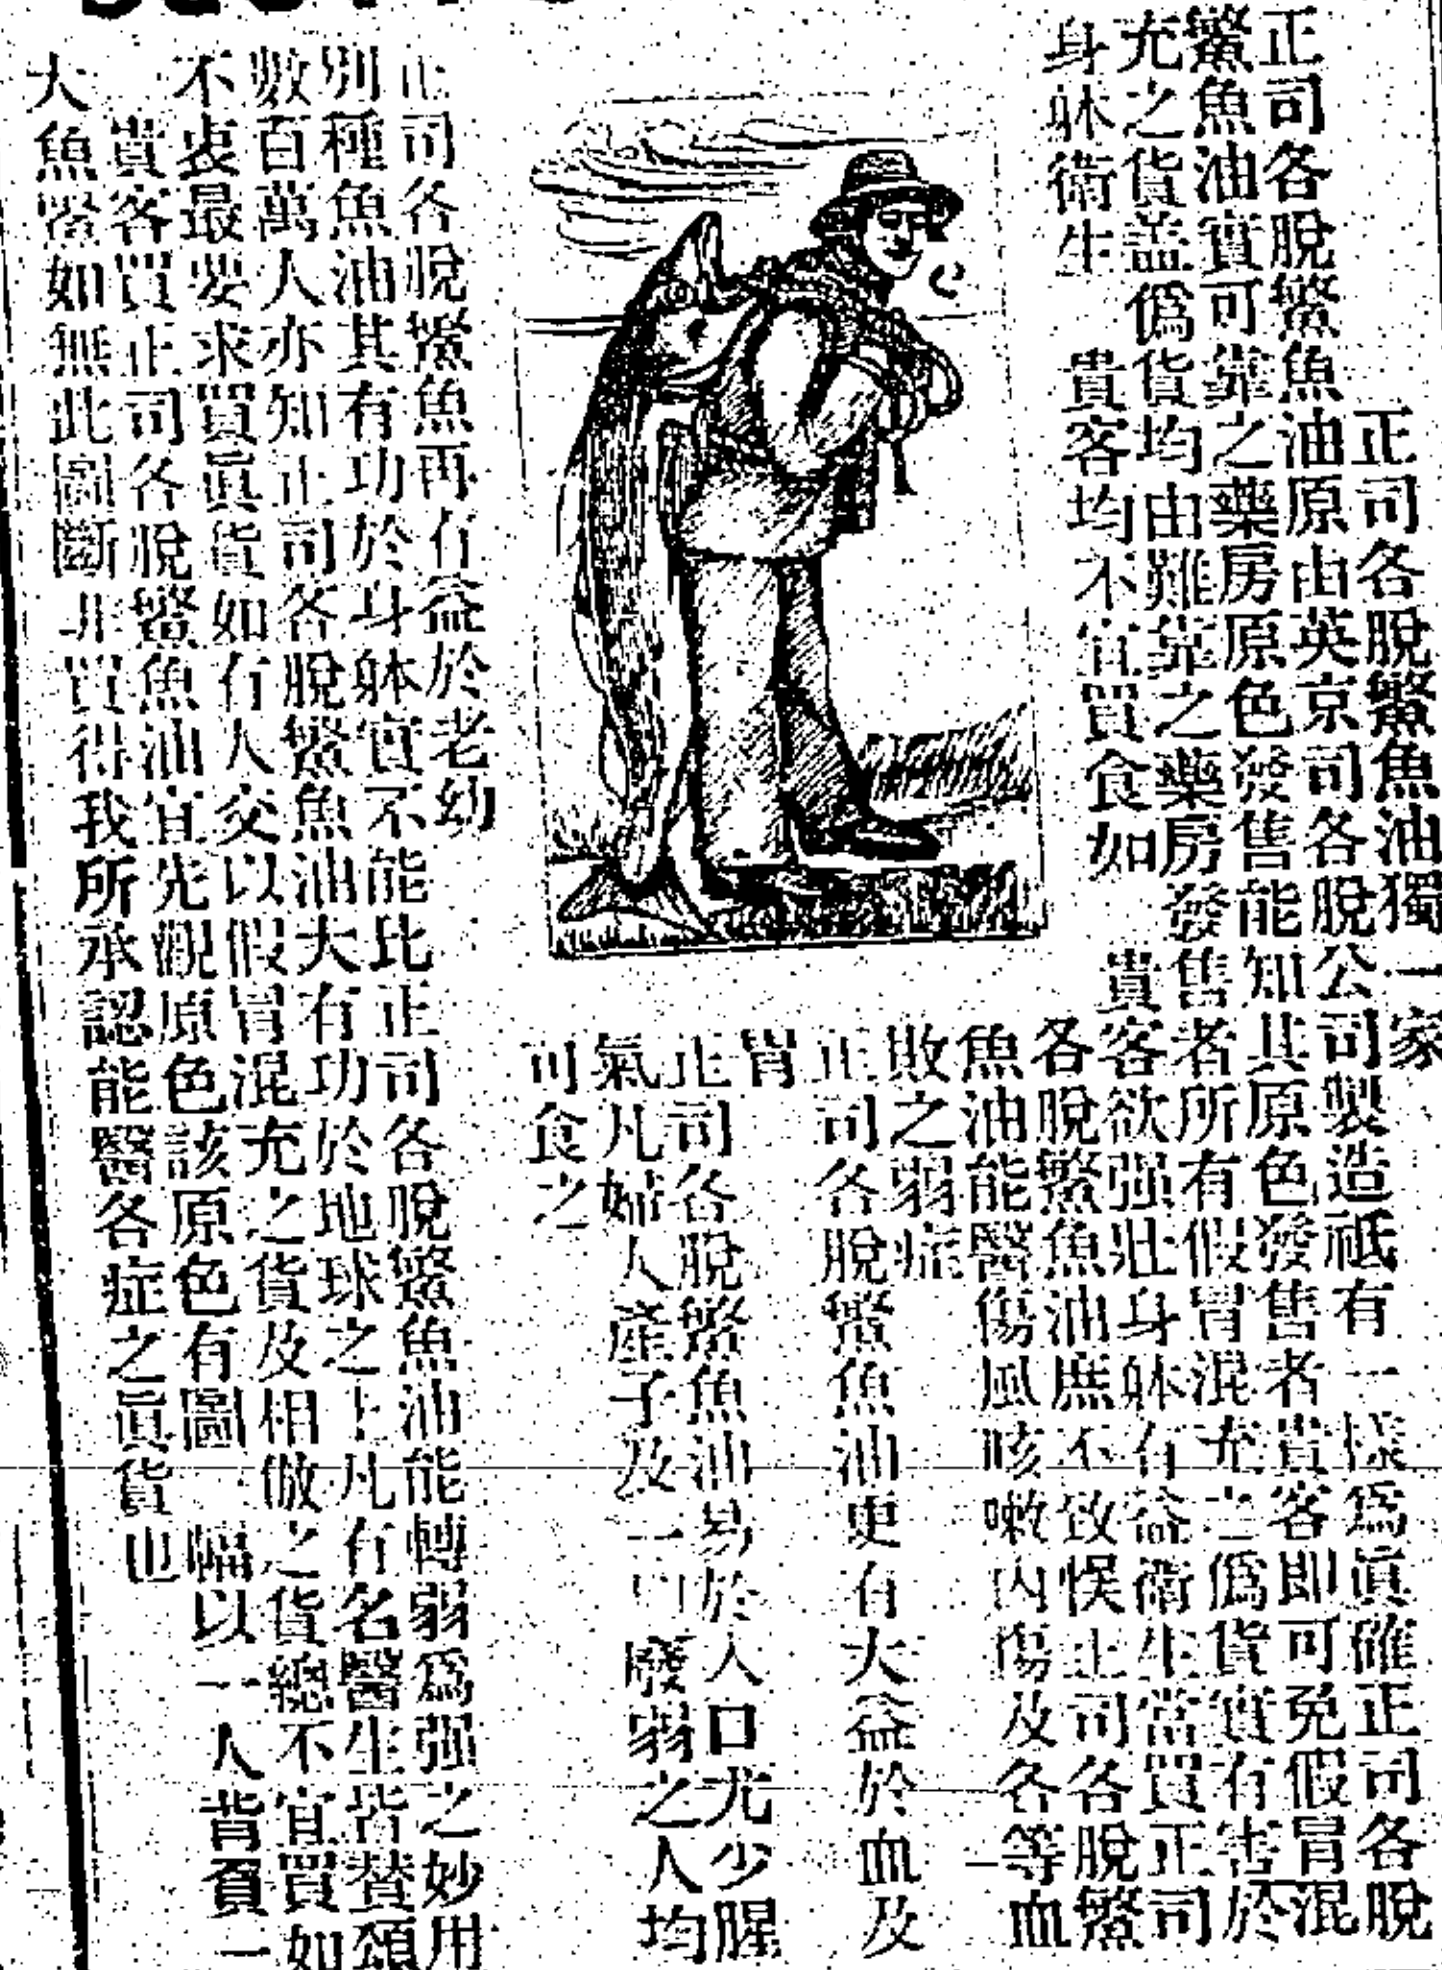 正司各脫鰵魚油獨一家
正司各脫鰵魚油原由英京司各脫公司製造祗有一樣爲眞確正司各脫
鰵魚油實可靠之藥房原色發售能知其原色發售者貴客即可免假冒混
充之貨盖僞貨均由難靠之藥房發售者所有假冒混充之僞貨實有害於
身躰衛生 貴客均不宜買食如 貴客欲强壯身躰有益衛生當買正司
各脫鰵魚油庶不致悞正司各脫鰵
魚油能醫傷風咳嗽內傷及各等血
敗之弱症
正司各脫鰵魚油更有大益於血及
胃
正司各脫鰵魚油易於人口尤少腥
氣凡婦人產子及一切廢弱之人均
可食之
正司各脫鰵魚再有益於老幼
別種魚油其有功於身躰實不能比正司各脫鰵魚油能轉弱爲强之妙用
數百萬人亦知正司各脫鰵魚油大有功於地球之上凡有名醫生皆賛頌
不衷最要求買眞貨如有人交以假冒混充之貨及相倣之貨總不宜買如
貴客買正司各脫鰵魚油宜先觀原色該原色有圖 幅以一人背負一
大魚醫如無此圖斷非買得我所承認能醫各症之眞貨也